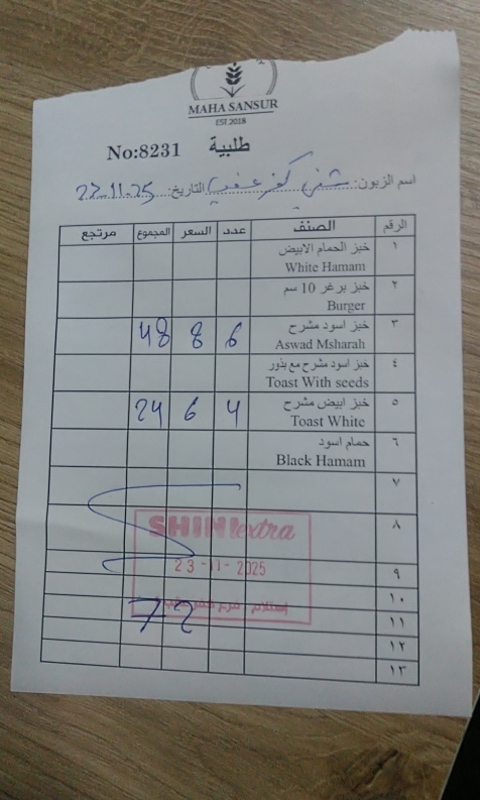 MAHA SANSUR
EST 2018
No:8231 طلبية
اسم الزبون: شني كفر عقب التاريخ: 22-11-25
الرقم الصنف عدد السعر المجموع مرتجع
١ خبز الحمام الابيض
White Hamam
٢ خبز برغر 10 سم
Burger
٣ خبز اسود مشرح 6 8 48
Aswad Msharah
٤ خبز اسود مشرح مع بذور
Toast With seeds
٥ خبز ابيض مشرح 4 6 24
Toast White
٦ حمام اسود
Black Hamam
٧
٨
SHINI extra
٩
23-11-2025
١٠
إستلام فرع كفر عقب
١١ 72
١٢
١٣